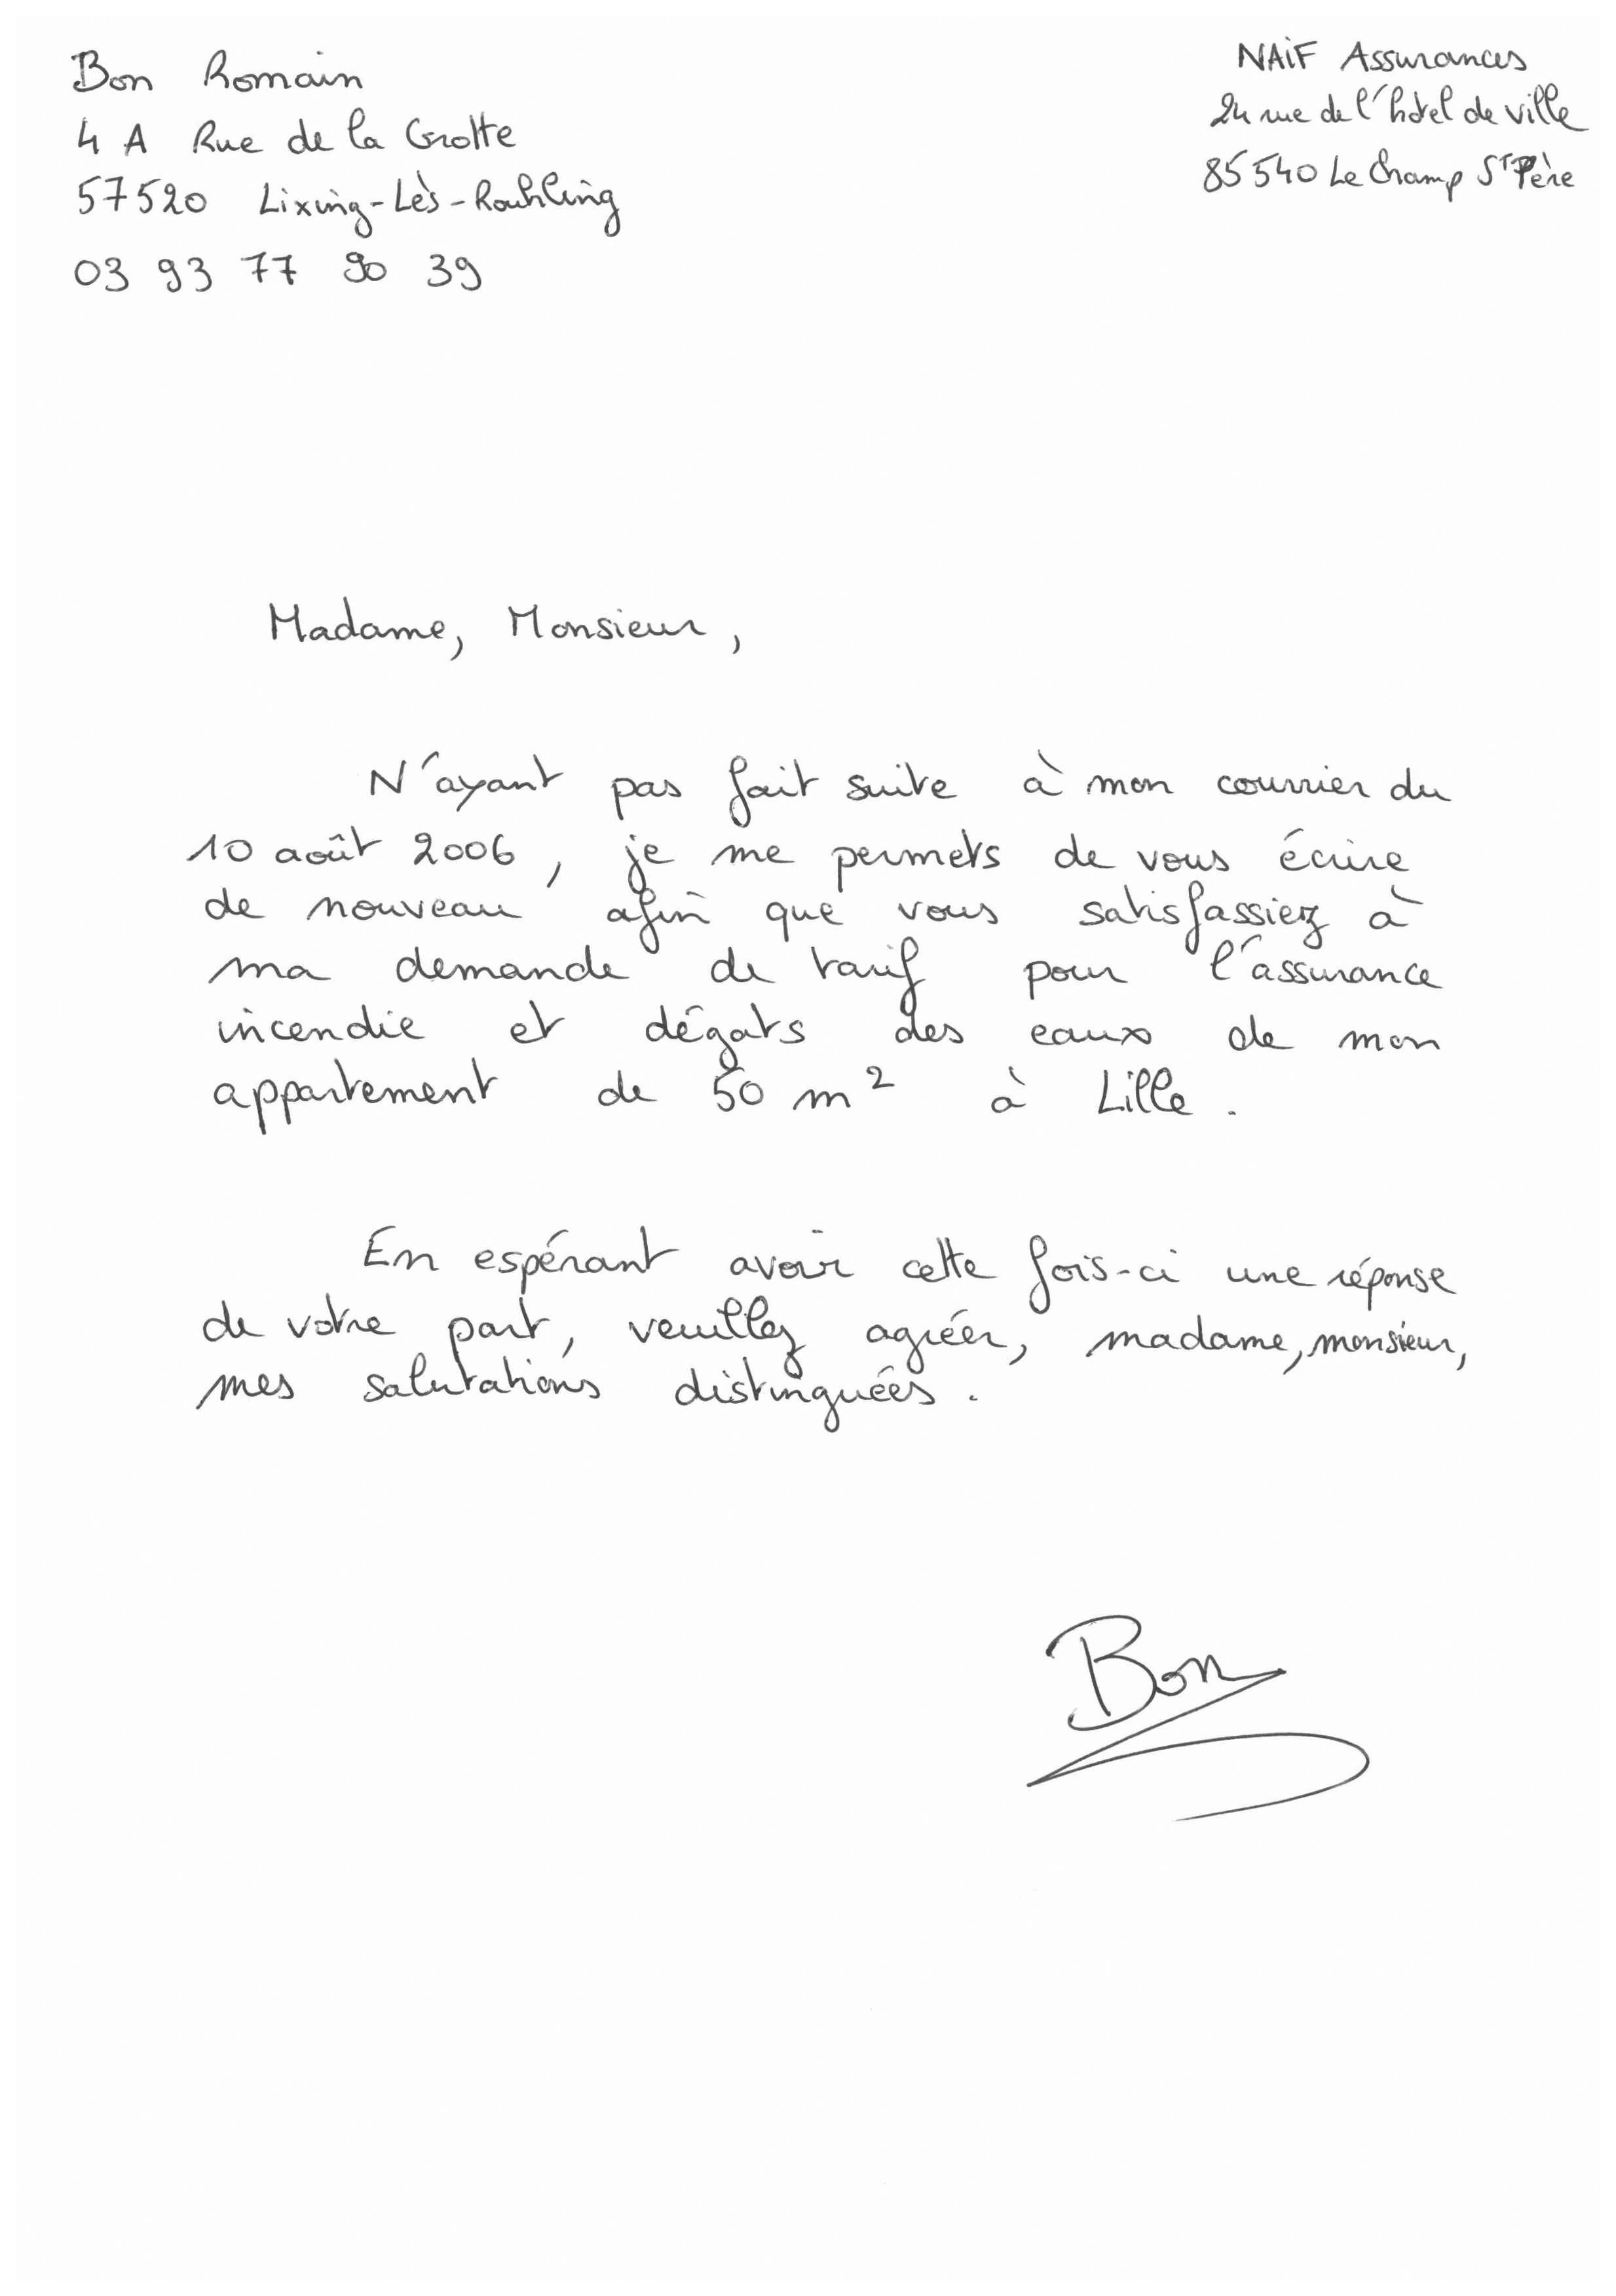 Bon Romain
4 A Rue de la Grotte
57520 Lixing-Lès-Rouhling
03 93 77 90 39
NAiF Assurances
24 rue de l'hotel de ville
85540 Le Champ St Père
Madame, Monsieur,
N'ayant pas fait suite à mon courrier du
10 août 2006, je me permets de vous écrire
de nouveau afin que vous satisfassiez à
ma demande de tarif pour l'assurance
incendie et dégats des eaux de mon
appartement de 50 m² à Lille.
En espérant avoir cette fois-ci une réponse
de votre part, veuillez agréer, madame, monsieur,
mes salutations distinguées.
Bon